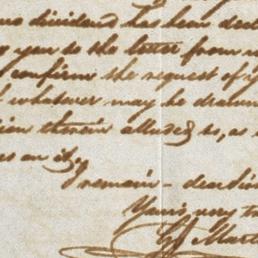 no dividend has been decl
you to the letter from
confirm the request of
whatever may be drawn
therein alluded to, as
as an
remain - dear Si
Yours very t
Mart